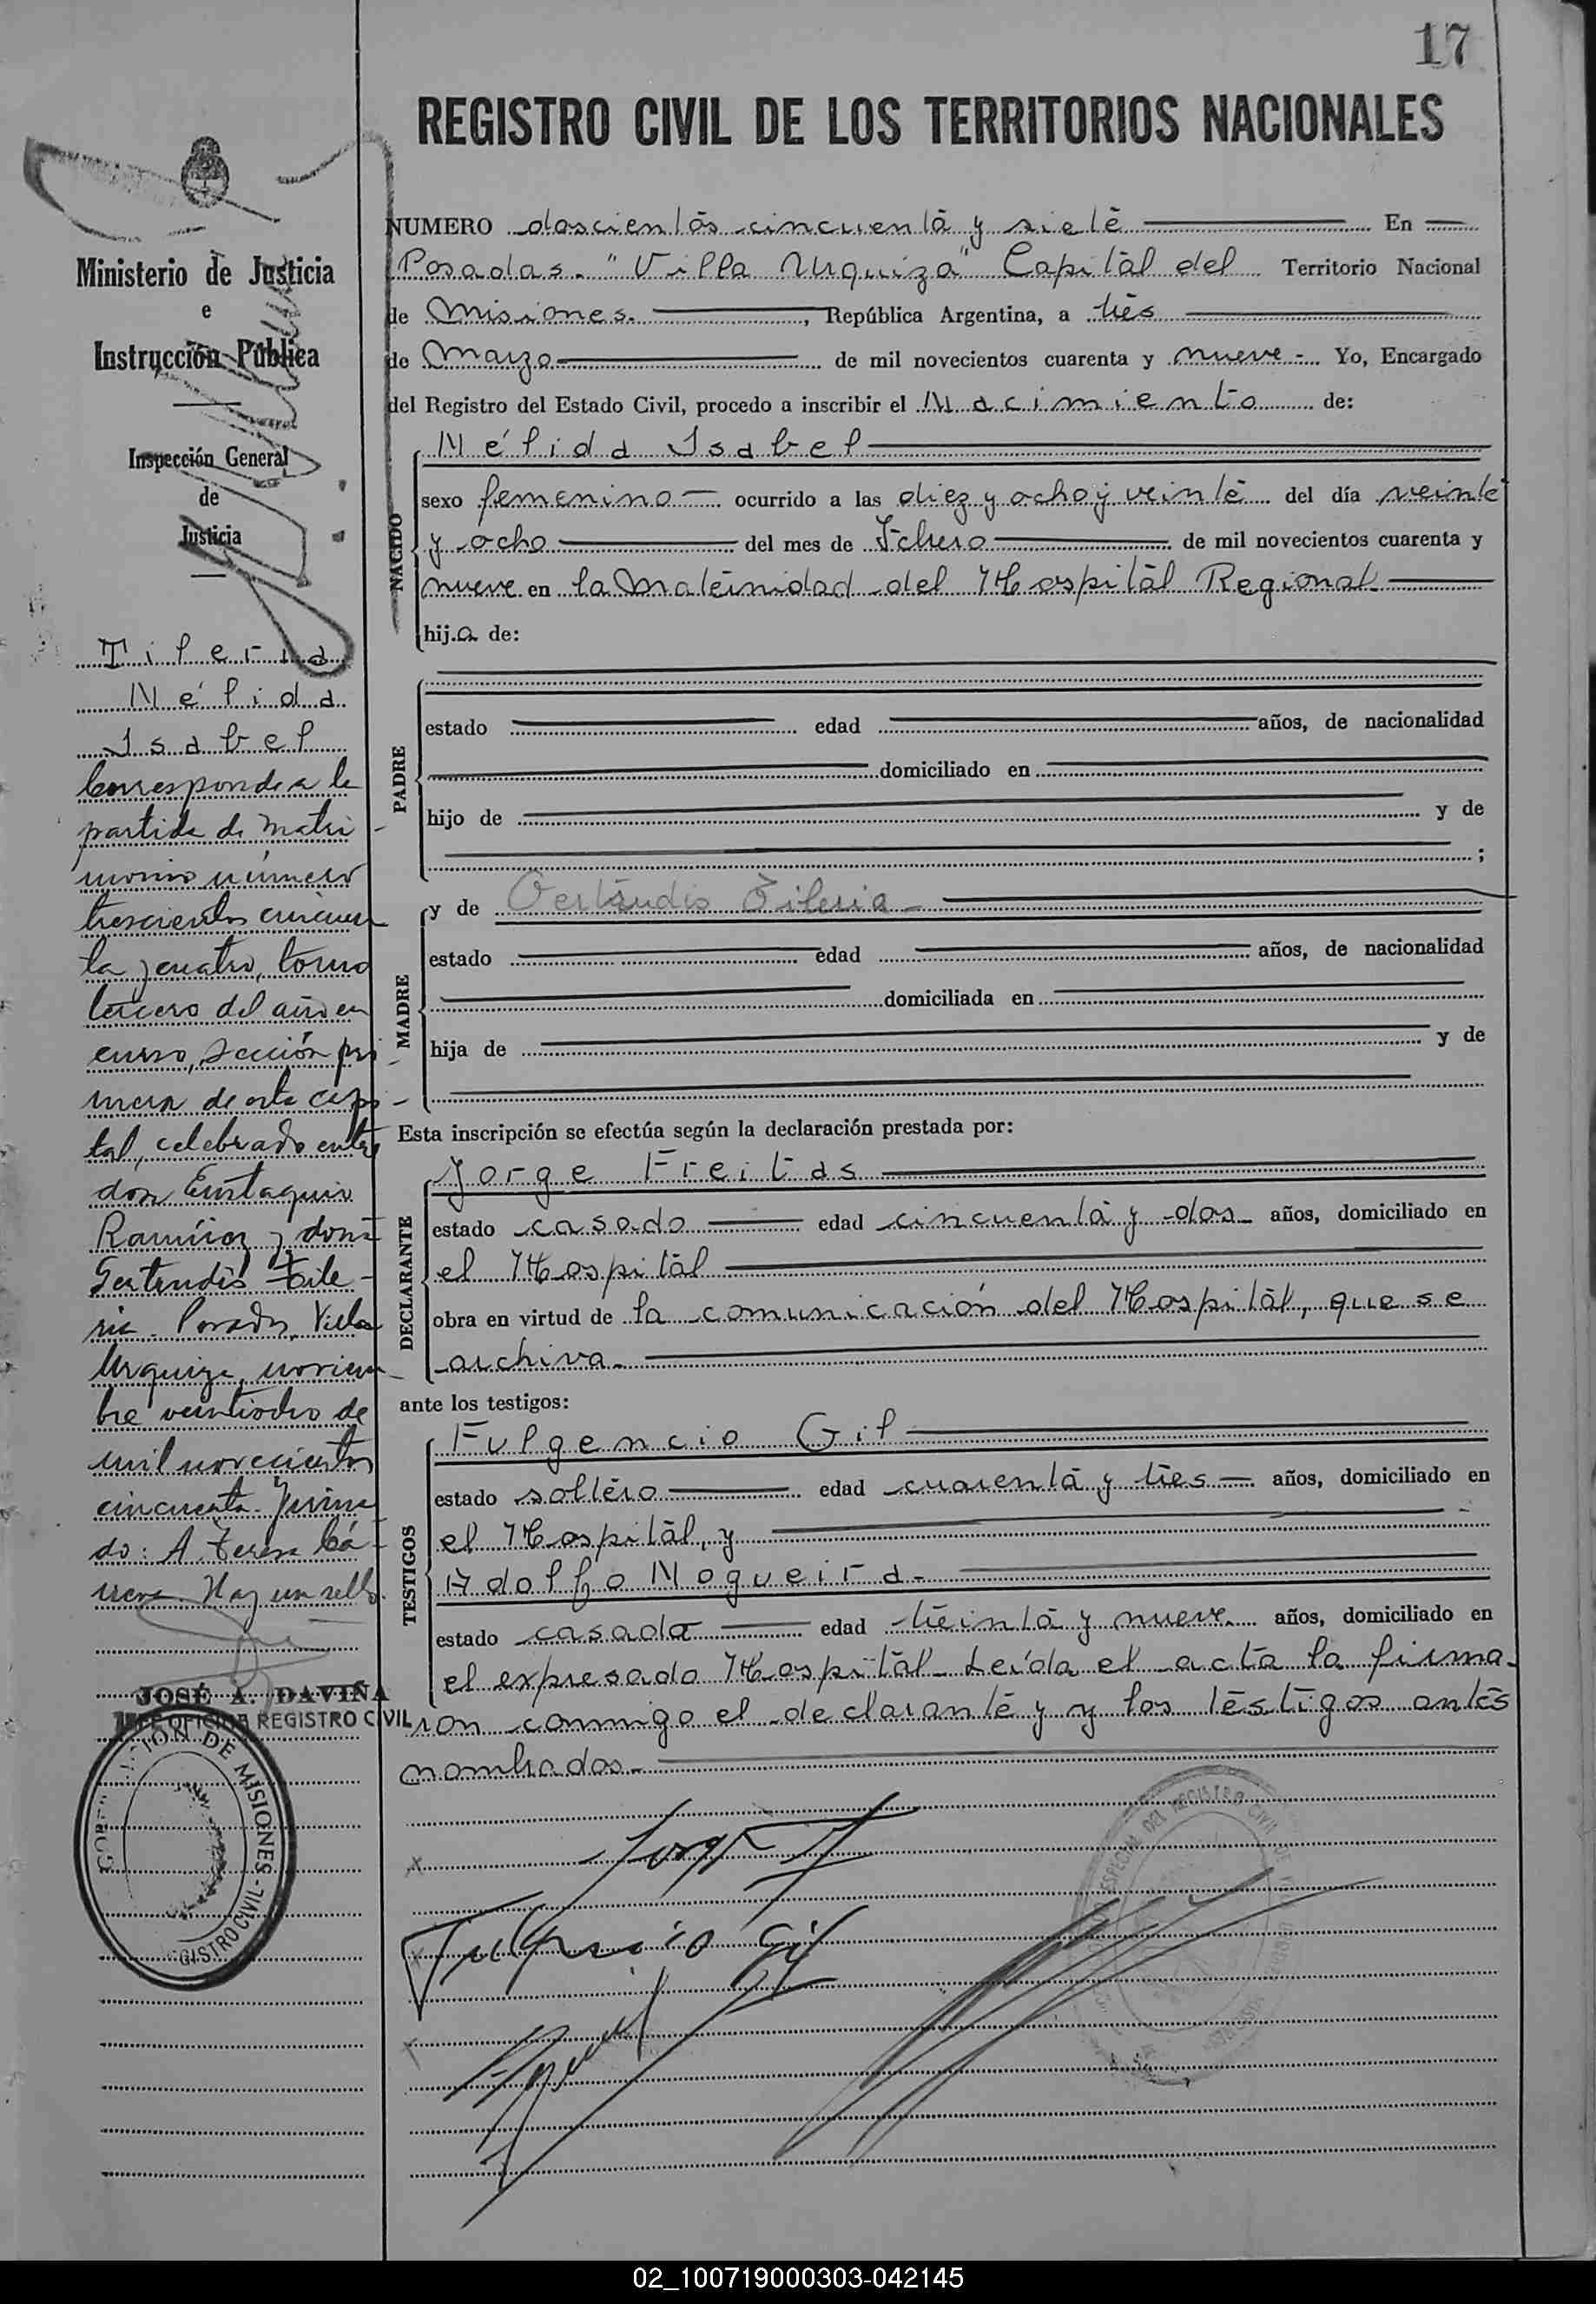 17
REGISTRO CIVIL DE LOS TERRITORIOS NACIONALES
Ministerio de Justicia
e
Instrucción Pública
Inspección General
de
Justicia
Tileria
Nélida
Isabel
Corresponde a la
partida de matri-
monio número
trescientos cincuen
ta y cuatro, tomo
tercero del año en
curso, sección pri-
mera de esta capi-
tal, celebrado entre
don Eustaquio
Ramírez y doña
Gertrudis Tile-
ria. Posadas, Villa
Urquiza, noviem-
bre veintiocho de
mil novecientos
cincuenta. Firma-
do: A. Hay un sello.
JOSÉ A. DAVIÑA
JEFE OFICINA REGISTRO CIVIL
DE MISIONES - REGISTRO CIVIL -
NUMERO doscientos cincuenta y siete En
Posadas. "Villa Urquiza" Capital del Territorio Nacional
de Misiones. , República Argentina, a tres
de Marzo de mil novecientos cuarenta y nueve - Yo, Encargado
del Registro del Estado Civil, procedo a inscribir el Nacimiento de:
NACIDO
Nélida Isabel
sexo femenino - ocurrido a las diez y ocho y veinte del día veinte
y ocho del mes de Febrero de mil novecientos cuarenta y
nueve en la Maternidad del Hospital Regional
hij.a de:
PADRE
estado edad años, de nacionalidad
domiciliado en
hijo de y de
;
MADRE
y de Gertrudis Tileria -
estado edad años, de nacionalidad
domiciliada en
hija de y de
Esta inscripción se efectúa según la declaración prestada por:
DECLARANTE
Jorge Freitas
estado casado edad cincuenta y dos años, domiciliado en
el Hospital
obra en virtud de la comunicación del Hospital, que se
archiva.
ante los testigos:
TESTIGOS
Fulgencio Gil
estado soltero edad cuarenta y tres - años, domiciliado en
el Hospital, y
Adolfo Nogueira -
estado casado edad treinta y nueve años, domiciliado en
el expresado Hospital - Leída el acta la firma-
ron conmigo el declarante y y los testigos antes
nombrados.-
Fulgencio Gil
DEL REGISTRO CIVIL
02_100719000303-042145